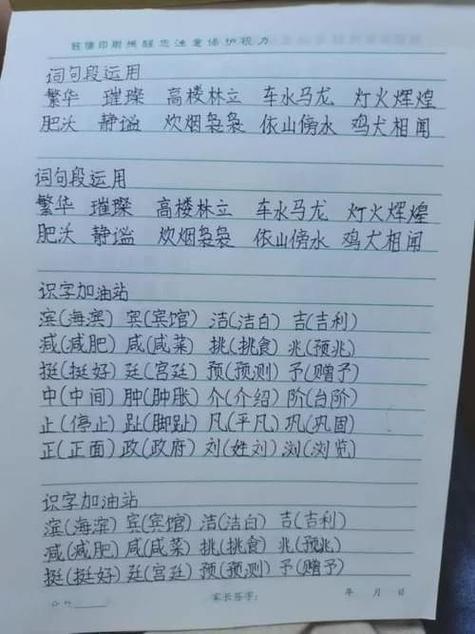 鞍德印刷提醒您注意保护视力
词句段运用
繁华 璀璨 高楼林立 车水马龙 灯火辉煌
肥沃 静谧 炊烟袅袅 依山傍水 鸡犬相闻
词句段运用
繁华 璀璨 高楼林立 车水马龙 灯火辉煌
肥沃 静谧 炊烟袅袅 依山傍水 鸡犬相闻
识字加油站
滨(海滨) 宾(宾馆) 洁(洁白) 吉(吉利)
减(减肥) 咸(咸菜) 挑(挑食) 兆(预兆)
挺(挺好) 廷(宫廷) 预(预测) 予(赠予)
中(中间) 肿(肿胀) 介(介绍) 阶(台阶)
止(停止) 趾(脚趾) 凡(平凡) 巩(巩固)
正(正面) 政(政府) 刘(姓刘) 浏(浏览)
识字加油站
滨(海滨) 宾(宾馆) 洁(洁白) 吉(吉利)
减(减肥) 咸(咸菜) 挑(挑食) 兆(预兆)
挺(挺好) 廷(宫廷) 预(预测) 予(赠予)
家长签字： 年 月 日